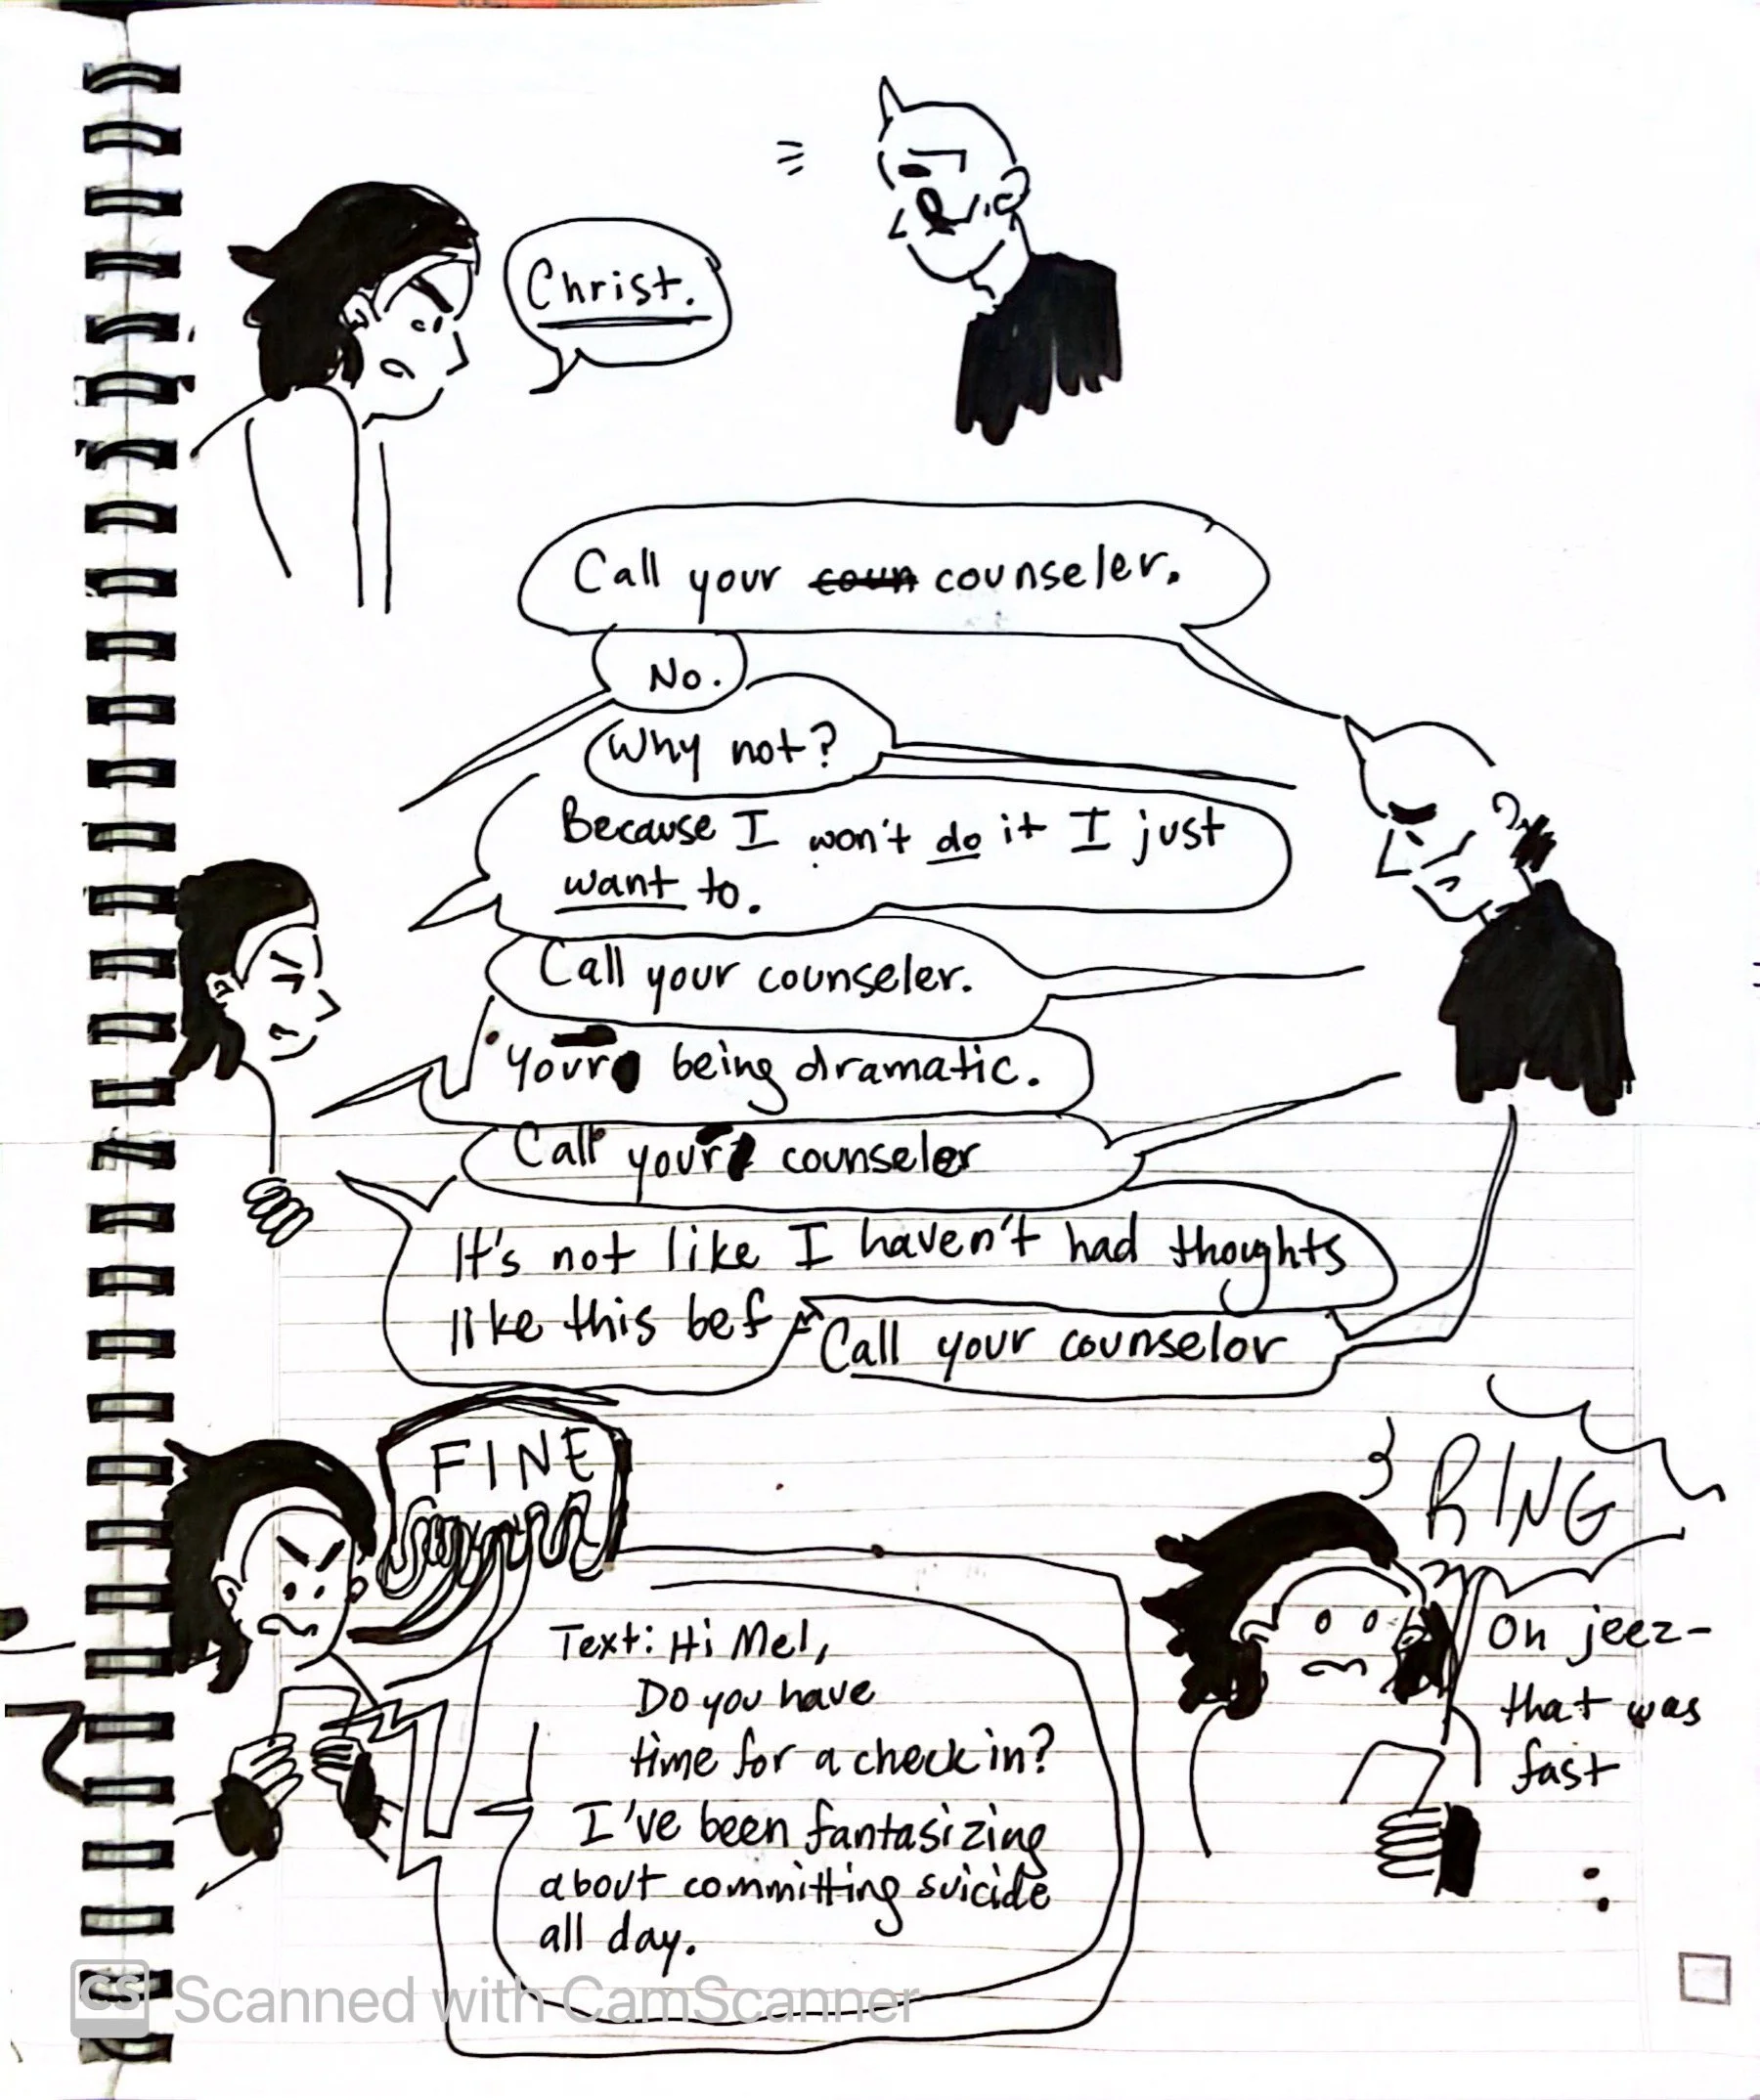 Christ.
Call your coun counseler.
No.
Why not?
Because I won't do it I just
want to.
Call your counseler.
Your being dramatic.
Call your counseler
It's not like I haven't had thoughts
like this bef
Call your counselor
FINE
RING
Text: Hi Mel,
Do you have
time for a check in?
I've been fantasizing
about committing suicide
all day.
Oh jeez-
that was
fast
CS Scanned with CamScanner